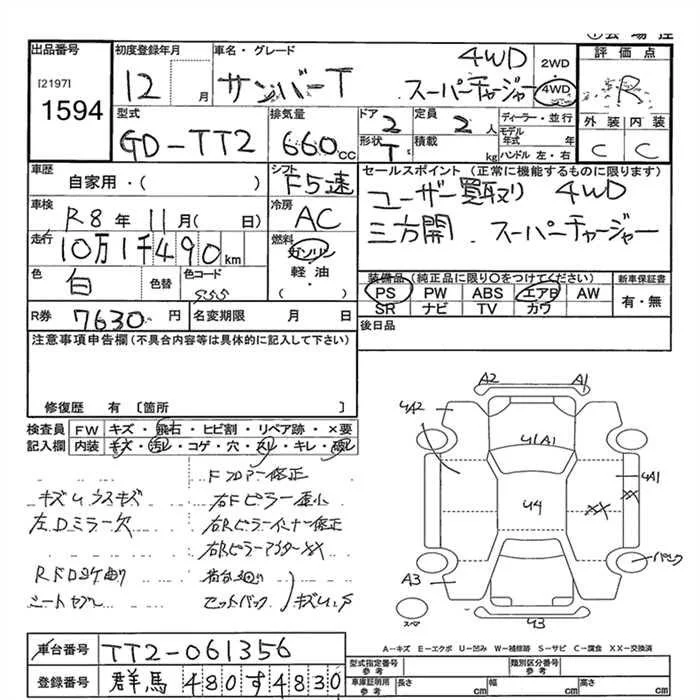 出品番号
[2197]
1594
初度登録年月
12 月
車名・グレード
サンバーT 4WD
スーパーチャージャー
2WD
4WD
評価点
R
外装 内装
C C
型式
GD-TT2
排気量
660 CC
ドア 2
定員 2 人
形状 T
積載 kg
ディーラー・並行
モデル年式 年
ハンドル 左・右
車歴
自家用・( )
シフト
F5速
セールスポイント (正常に機能するものに限ります)
ユーザー買取り 4WD
三方開 . スーパーチャージャー
車検
R8年 11月( 日)
冷房
AC
走行
10万1千490 km
燃料
ガソリン
軽・油
・( )
色
白
色替
色コード
555
装備品 (純正品に限り○をつけてください)
PS PW ABS エアB AW
SR ナビ TV カワ
新車保証書
有・無
R券 7630 円
名変期限 月 日
後日品
注意事項申告欄(不具合内容等は具体的に記入して下さい)
修復歴 有 〔箇所 〕
検査員 FW キズ・飛石・ヒビ割・リペア跡・×要
記入欄 内装 キズ・汚レ・コゲ・穴・スレ・キレ・破レ
Fフロアー修正
キズUウスキズ 右Fピラー歪小
左Dミラー欠 右Rピラーインナー修正
右RピラーアウターXX
セットバック
A2 A1
4A2
U1A1
4A1
U4
XX
XX
パンク
A3
スペア
U3
A-キズ E-エクボ U-凹み W-補修跡 S-サビ C-腐食 XX-交換済
車台番号 TT2-061356
登録番号 群馬 480 す 4830
型式指定番号
参考
類別区分番号
参考
車庫証明用
参考
長さ cm
幅 cm
高さ cm